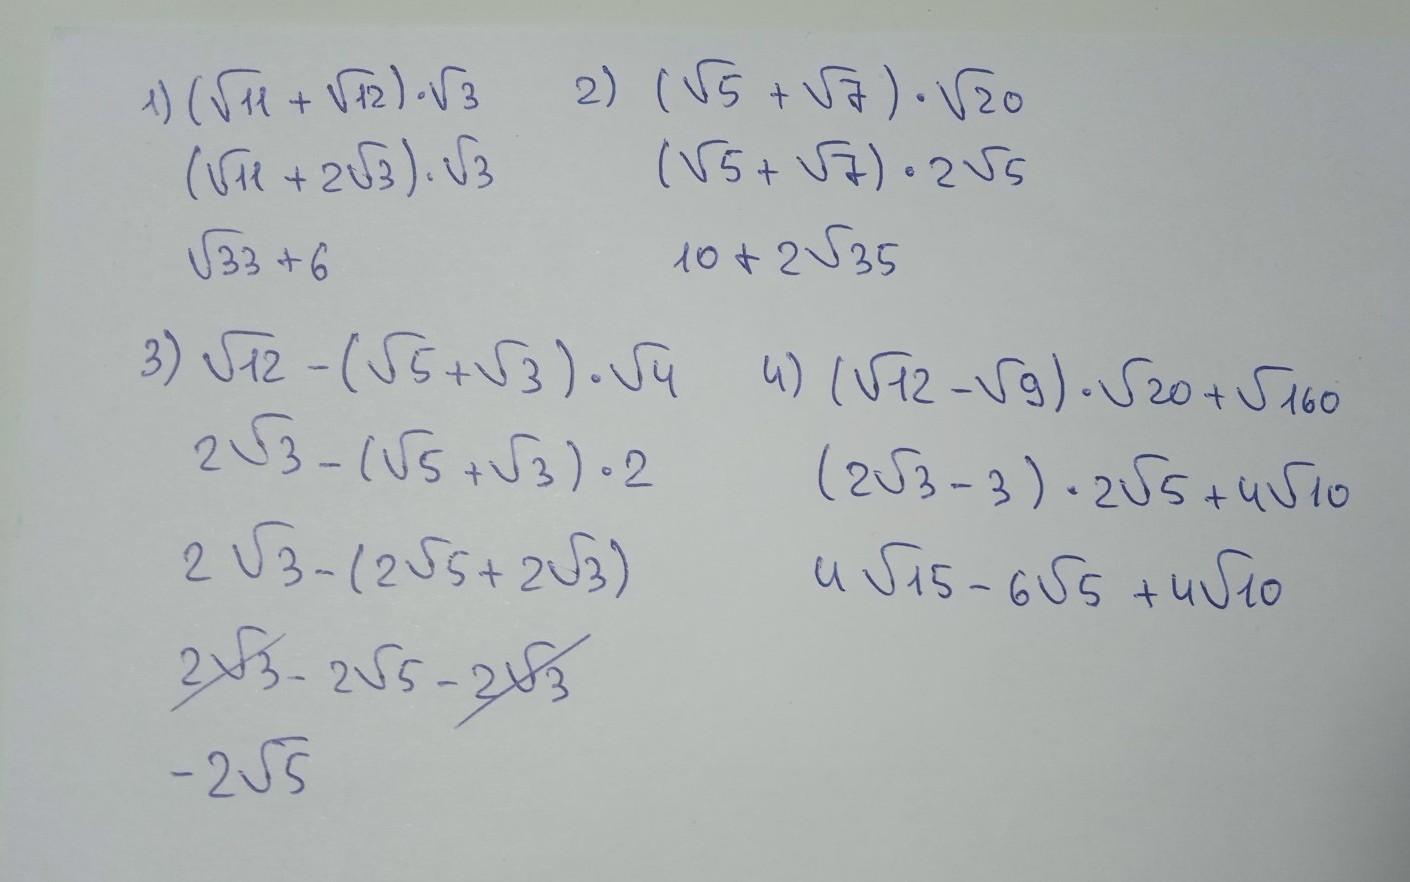 1) (√11 + √12) · √3
(√11 + 2√3) · √3
√33 + 6
2) (√5 + √7) · √20
(√5 + √7) · 2√5
10 + 2√35
3) √12 - (√5 + √3) · √4
2√3 - (√5 + √3) · 2
2√3 - (2√5 + 2√3)
2√3 - 2√5 - 2√3
-2√5
4) (√12 - √9) · √20 + √160
(2√3 - 3) · 2√5 + 4√10
4√15 - 6√5 + 4√10